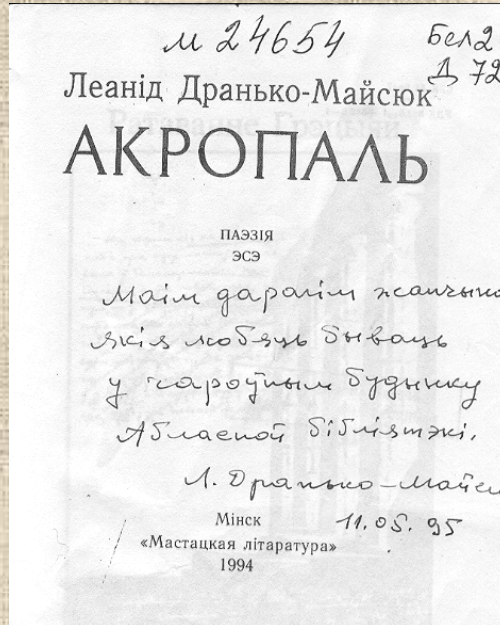 м 24654
Бел2
Д 72
Леанід Дранько-Майсюк
АКРОПАЛЬ
ПАЭЗІЯ
ЭСЭ
Маім дарагім жанчынам
якія любяць бываць
у чароўным будынку
Абласной бібліятэкі.
Л. Дранько-Майсю
11.05.95
Мінск
«Мастацкая літаратура»
1994